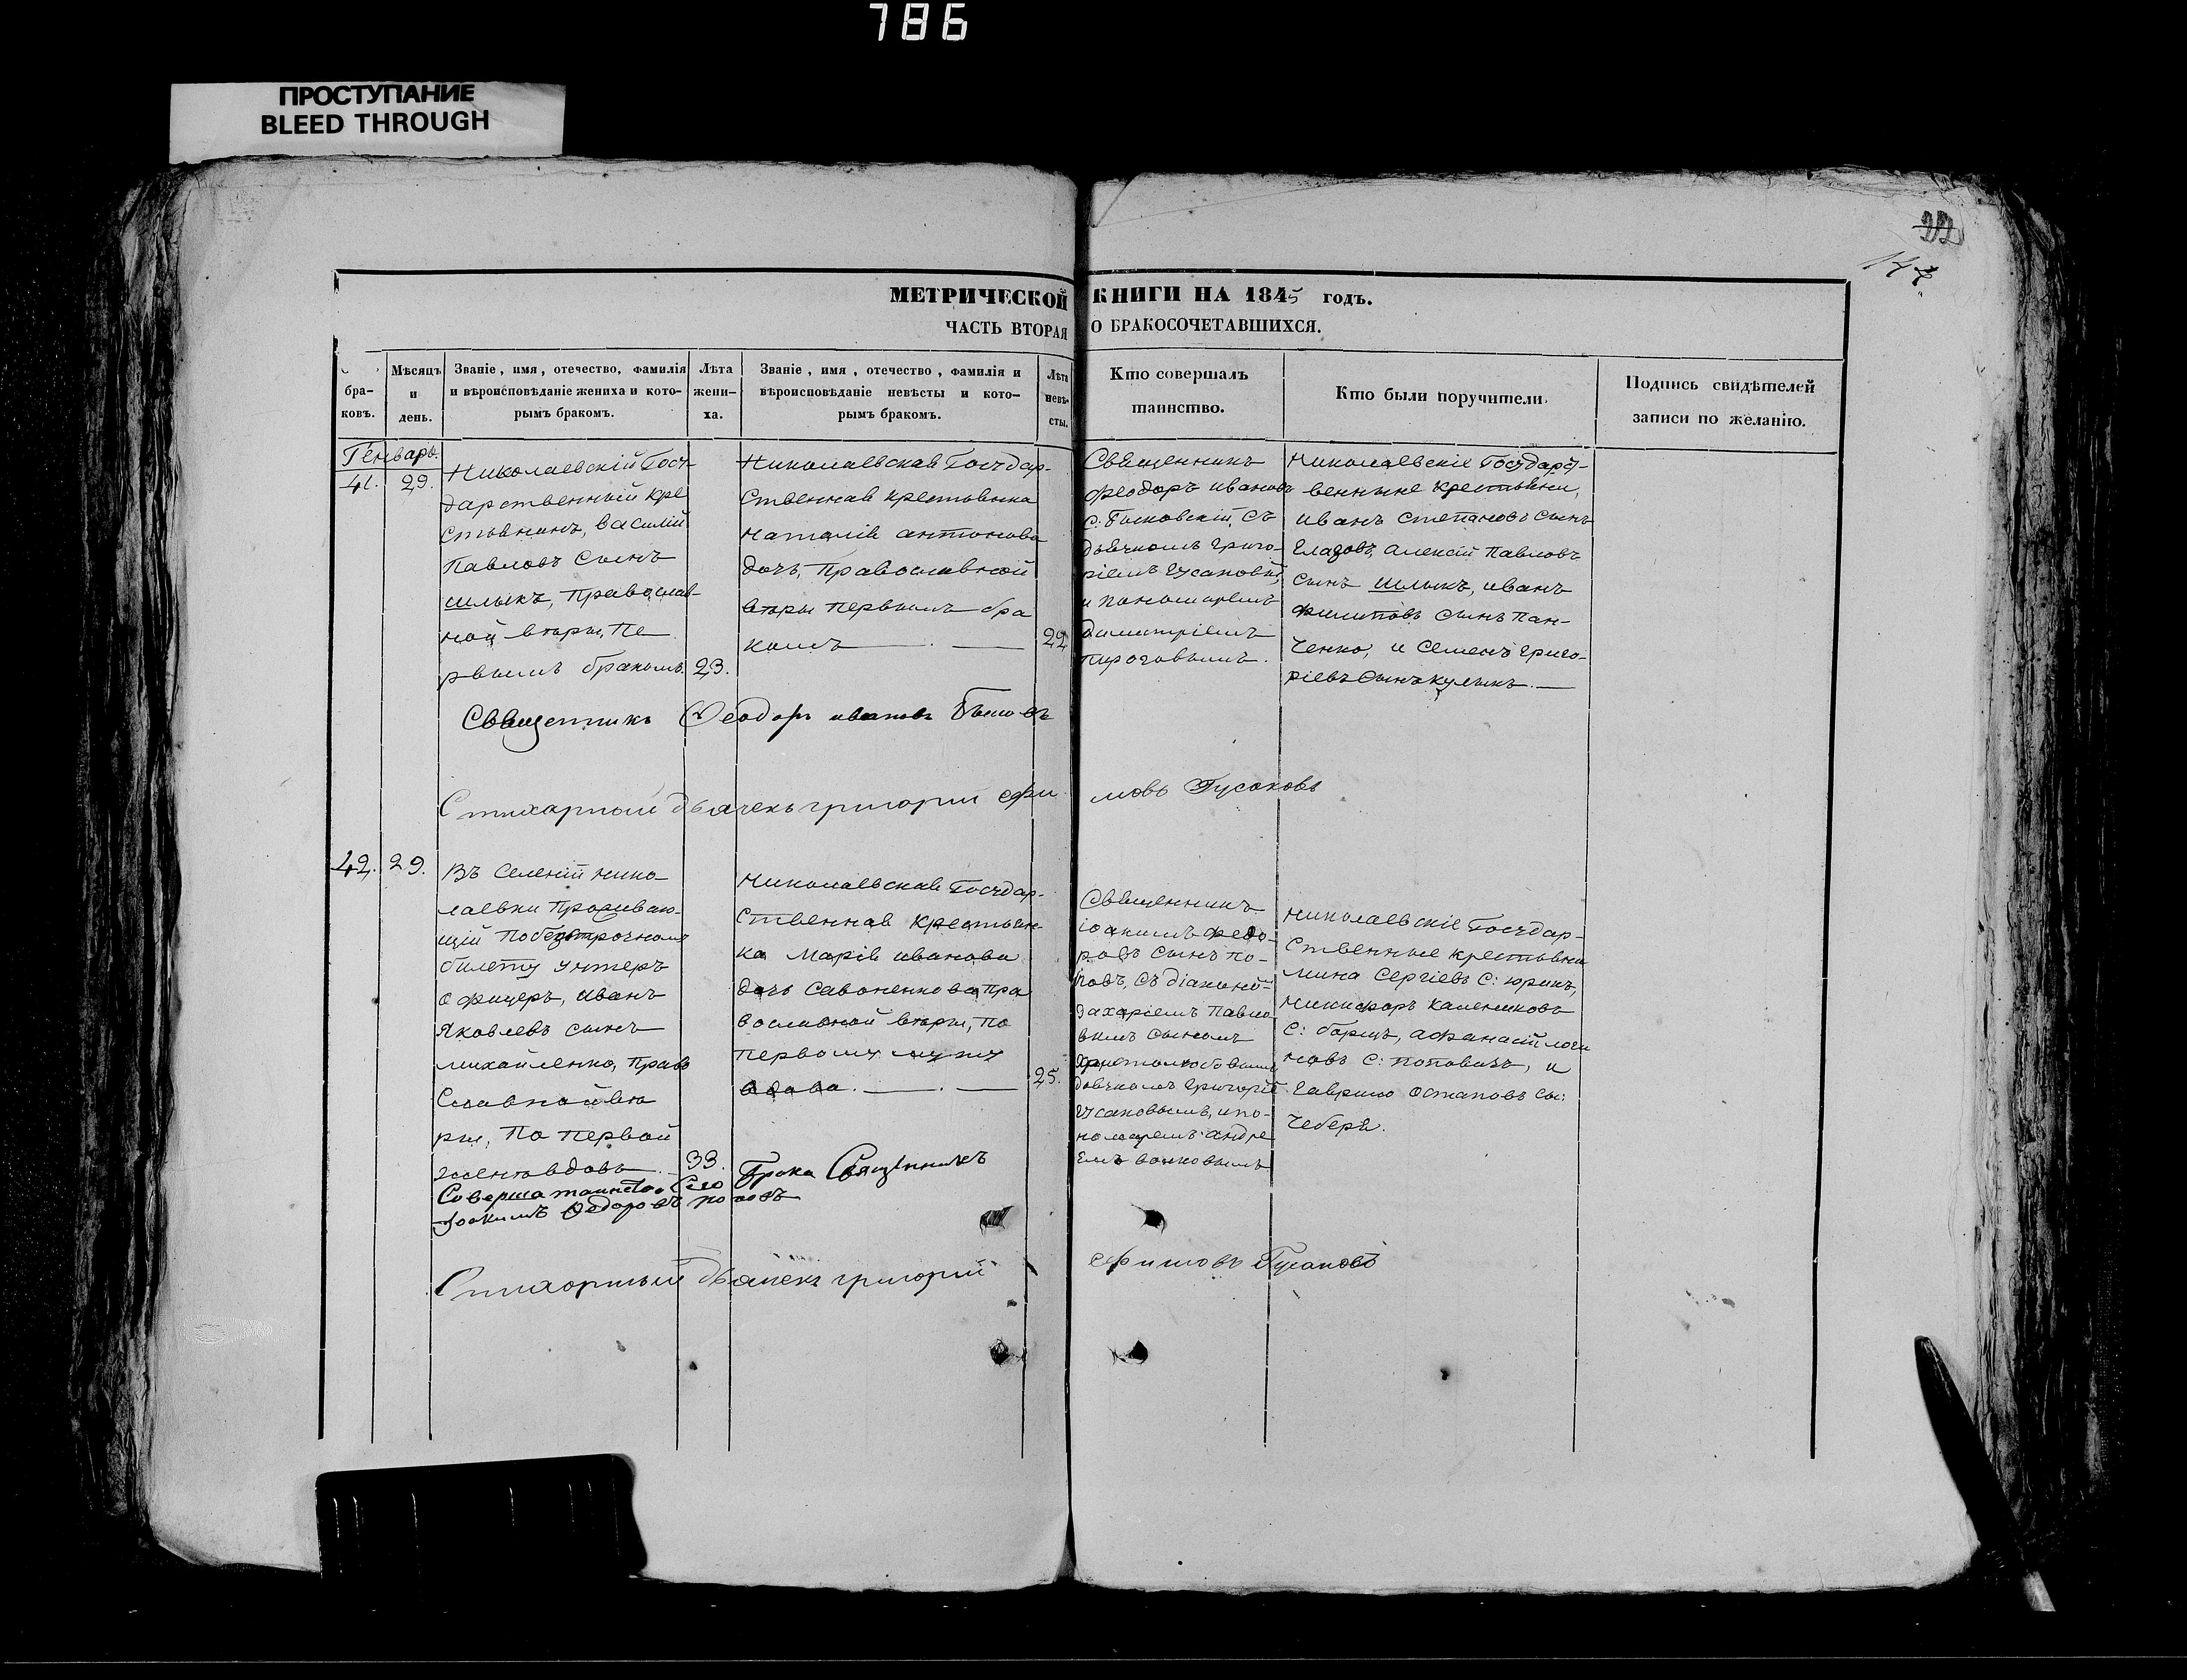 786
ПРОСТУПАНИЕ
BLEED THROUGH
22
147
МЕТРИЧЕСКОЙ КНИГИ НА 1845 годъ.
ЧАСТЬ ВТОРАЯ О БРАКОСОЧЕТАВШИХСЯ.
бра-
ковъ.
Мѣсяцъ
и
день.
Званіе, имя, отечество, фамилія
и вѣроисповѣданіе жениха и кото-
рымъ бракомъ.
Лѣта
жени-
ха.
Званіе, имя, отечество, фамилія и
вѣроисповѣданіе невѣсты и кото-
рымъ бракомъ.
Лѣта
невѣ-
сты.
Кто совершалъ
таинство.
Кто были поручители.
Подпись свидѣтелей
записи по желанію.
Генварь.
41. 29.
Николаевскій Госу-
дарственный кре
стьянинъ, василій
Павловъ сынъ
шлыкъ, православ-
ной вѣры, Пе
рвымъ бракомъ.
23.
Николаевская Государ-
ственная крестьянка
наталія антонова
дочь, Православной
вѣры первымъ бра
комъ
22
Священникъ
феодоръ ивановъ
с: съ
дьячкомъ григо-
ріемъ гусаковы
и пономаремъ
димитріемъ
пироговымъ.
Николаевскіе Государст-
венные крестьяни,
иванъ степановъ сынъ
Гладовъ, алексій Павловъ
сынъ шлыкъ, иванъ
филиповъ сынъ пан-
ченко, и семенъ григо-
ріевъ сынъ кулыкъ.
Священникъ Феодоръ ивановъ
Стихарный дьячекъ григорий ефи мовъ Гусаковъ
42. 29.
Въ селеніи нико
лаевки Проживаю-
щій побезсрочному
билету унтеръ
офицеръ, иванъ
Яковлевъ сынъ
михайленко, Право
славной вѣ
ры, По первой
женѣ вдовъ.
33.
Николаевская Государ-
ственная крестьян-
ка Марія иванова
дочь Савоненкова пра
вославной вѣры, по
первому мужу
вдова.
25.
Священникъ
іоакимъ федо-
ровъ сынъ по-
повъ, съ діакономъ
захаріемъ Павло
вымъ сыномъ
дьячкомъ Григоріе
гусаковымъ, и по-
номаремъ андре
емъ волковымъ
Николаевскіе Государ-
ственные крестьяни
мина Сергіевъ с: юрикъ,
никифоръ калениковъ
с: борщъ, афанасій логи
новъ с: поповичъ, и
гаврило остаповъ сы:
чеберя.
Соверша таинство Сего Брака Священникъ
Іоакимъ Федоровъ поповъ
Стихарный дьячекъ григорий ефимовъ Гусаковъ